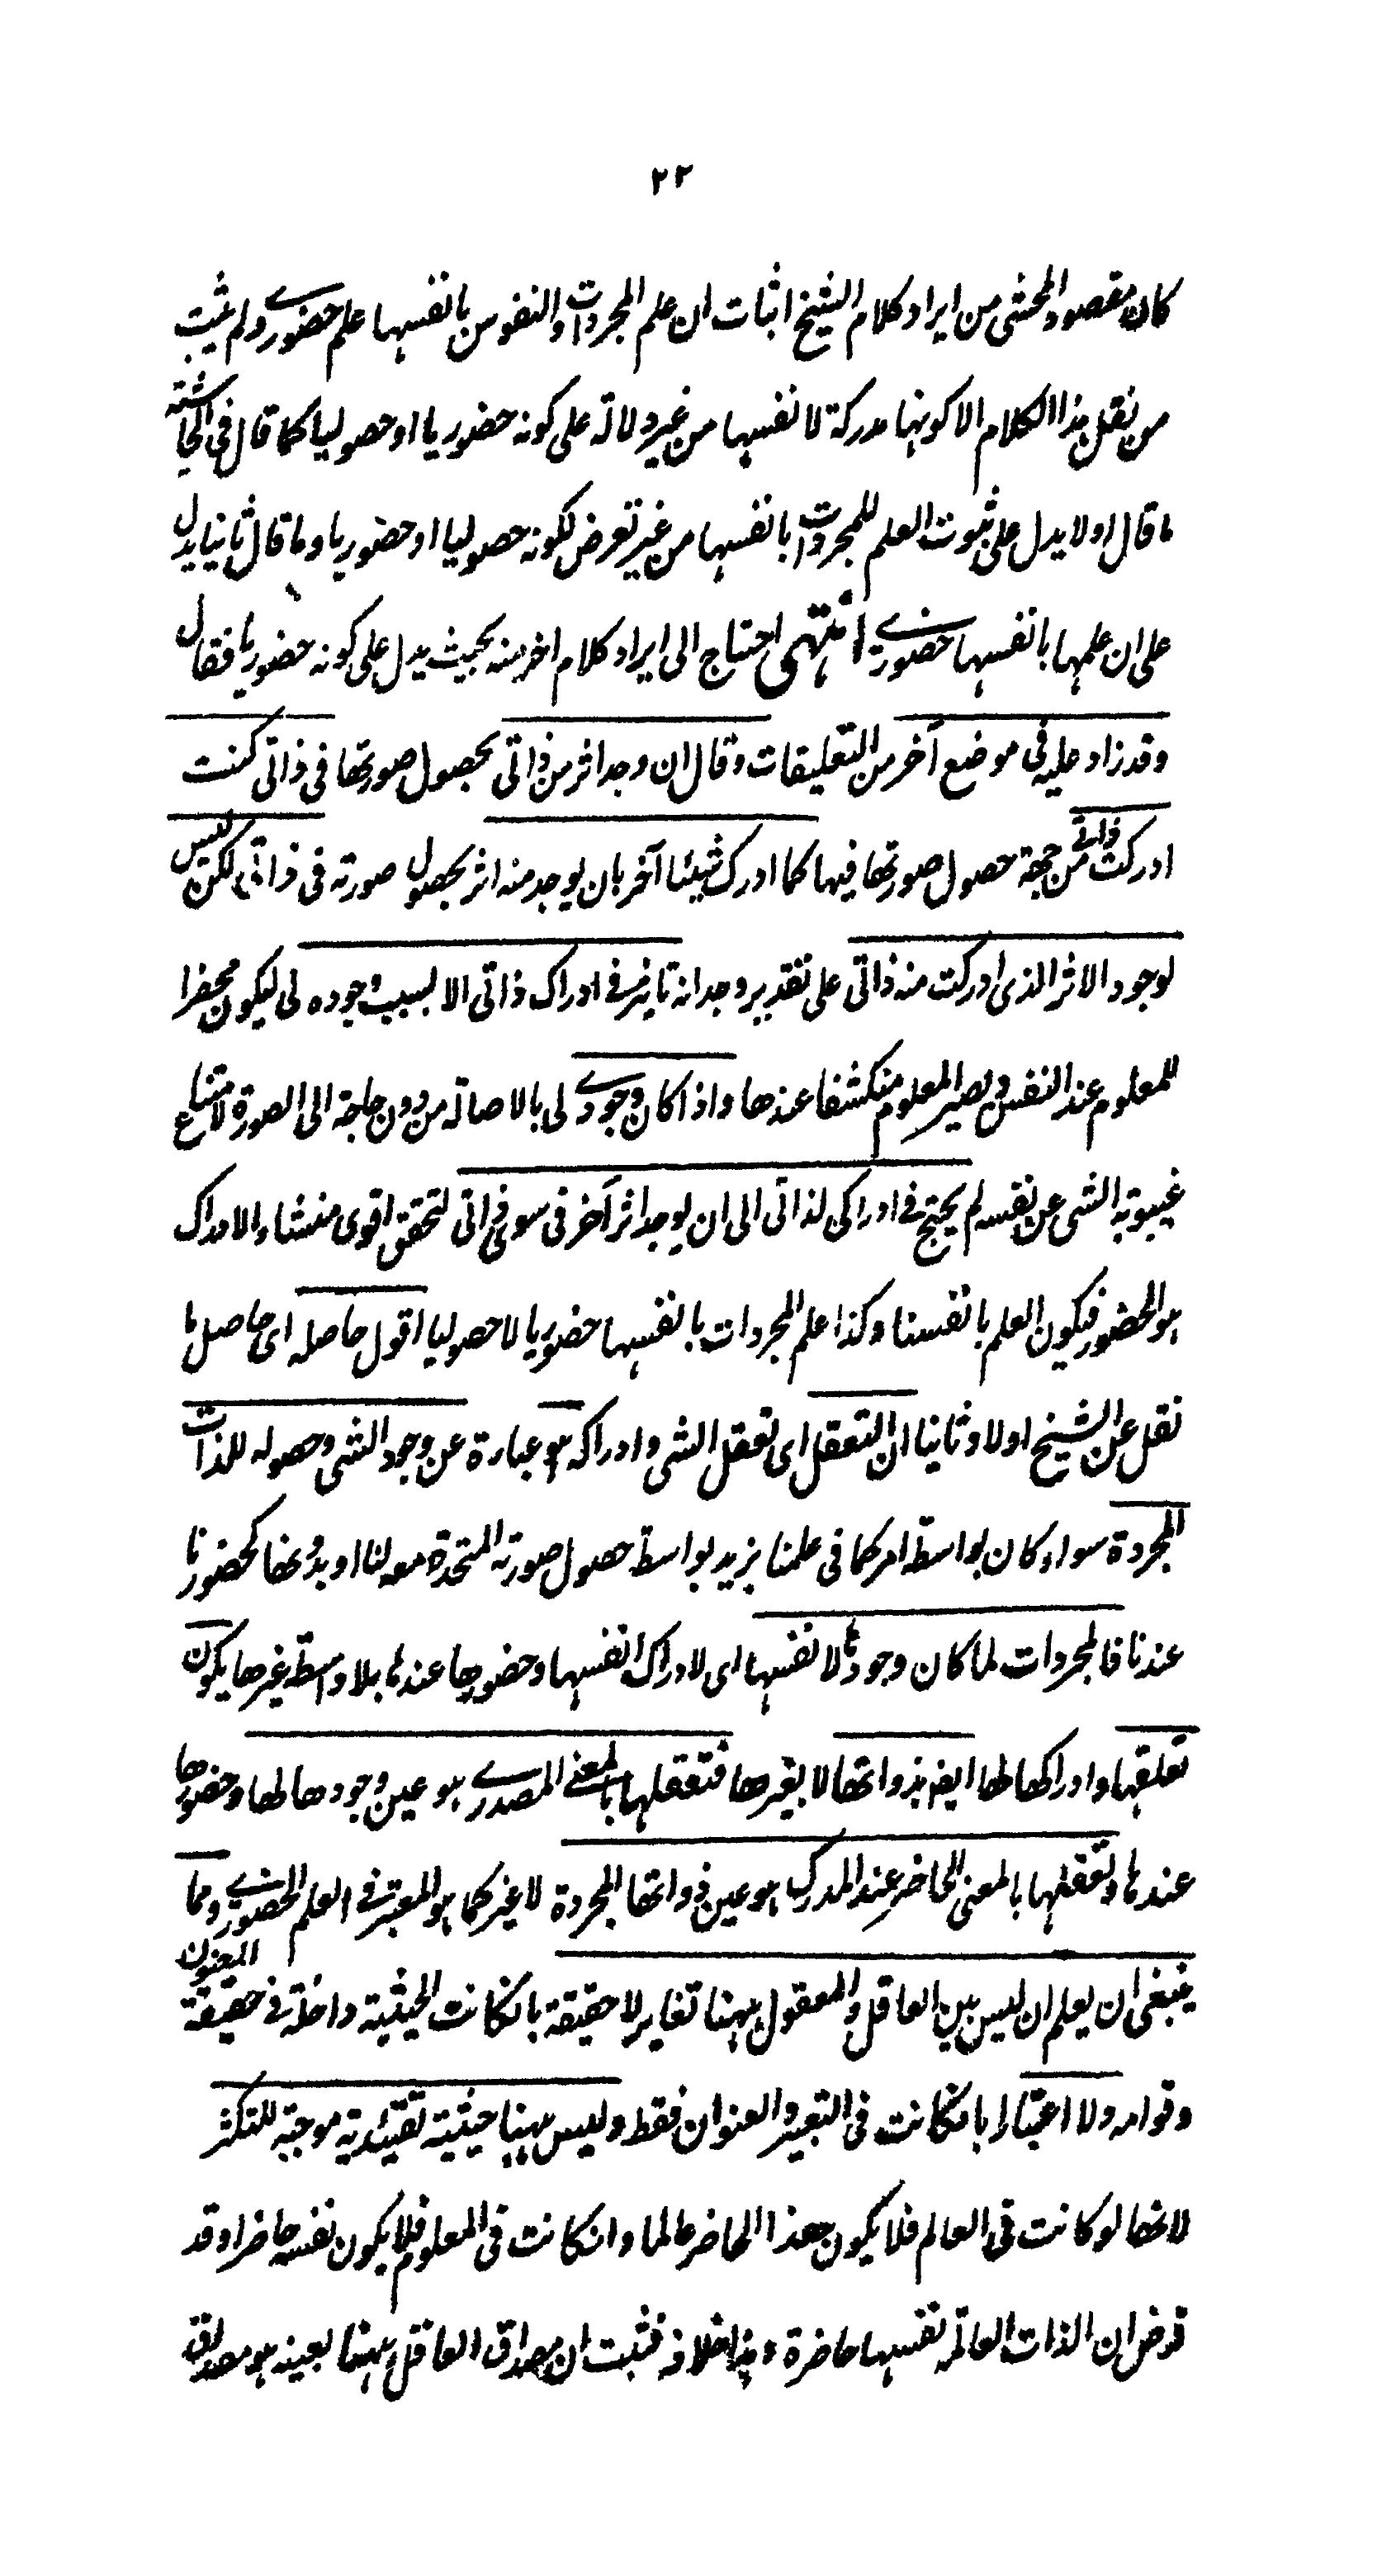 ٢٢
كان مقصود المحشى من ايراد كلام الشيخ اثبات ان علم المجردات والنفوس بانفسها علم حضورے ولم يثبت
من نقل هذا الكلام الا كونها مدركة لانفسها من غير دلالة على كونه حضوريا او حصوليا كما قال فى الحاشية
ما قال اولا يدل على ثبوت العلم للمجردات بانفسها من غير تعرض لكونه حصوليا او حضوريا وما قال ثانيا يدل
على ان علمها بانفسها حضورے انتهى احتاج الى ايراد كلام اخر منه بحيث يدل على كونه حضوريا فقال
وقد زاد عليه فى موضع آخر من التعليقات وقال ان وجد اثر من ذاتى بحصول صورتها فى ذاتى كنت
ادركت ذاتے من جهة حصول صورتها فيها كما ادرك شيئا آخر بان يوجد منه اثر بحصول صورته فى ذاتى لكن ليس
لوجود الاثر الذى ادركت منه ذاتى على تقدير وجدانه تاثير فے ادراك ذاتى الا لسبب وجوده لى ليكون محضرا
للمعلوم عند النفس ويصير المعلوم منكشفا عندها واذا كان وجودے لى بالاصالة من دون حاجة الى الصورة لامتناع
غيبوبة الشى عن نفسه لم يحتج فے ادراكى لذاتى الى ان يوجد اثر آخر فى سوى ذاتى لتحقق اقوى منشاء الادراك
هو الحضور فيكون العلم بانفسنا وكذا علم المجردات بانفسها حضوريا لا حصوليا اقول حاصله اى حاصل ما
نقل عن الشيخ اولا وثانيا ان التعقل اى تعقل الشى وادراكه هو عبارة عن وجود الشى وحصوله للذات
المجردة سواء كان بواسطة امر كما فى علمنا بزيد بواسطة حصول صورته المتحدة معه لنا او بدونها كحضورنا
عندنا فالمجردات لما كان وجودها لانفسها اى لادراك انفسها وحضورها عندها بلا واسطة غيرها يكون
تعلقها وادراكها لها ايضا بذواتها لا بغيرها فتعقلها بالمعنے المصدرے هو عين وجودها لها وحضورها
عندها وتعقلها بالمعنى الحاضر عند المدرك هو عين ذواتها المجردة لا غير كما هو المعتبر فے العلم الحضورے ومما
ينبغى ان يعلم ان ليس بين العاقل والمعقول ههنا تغاير لا حقيقة بان كانت الحيثية داخلة فے حقيقة المعنون
وقوامه ولا اعتبارا بان كانت فى التعبير والعنوان فقط وليس ههنا حيثية تقييدية موجبة للتكثر
لانها لو كانت فى العالم فلا يكون هذا الحاضر عالما وان كانت فى المعلوم فلا يكون نفسه حاضرا وقد
فرض ان الذات العالمة نفسها حاضرة وهذا خلافه فثبت ان مصداق العاقل ههنا بعينه هو مصداق